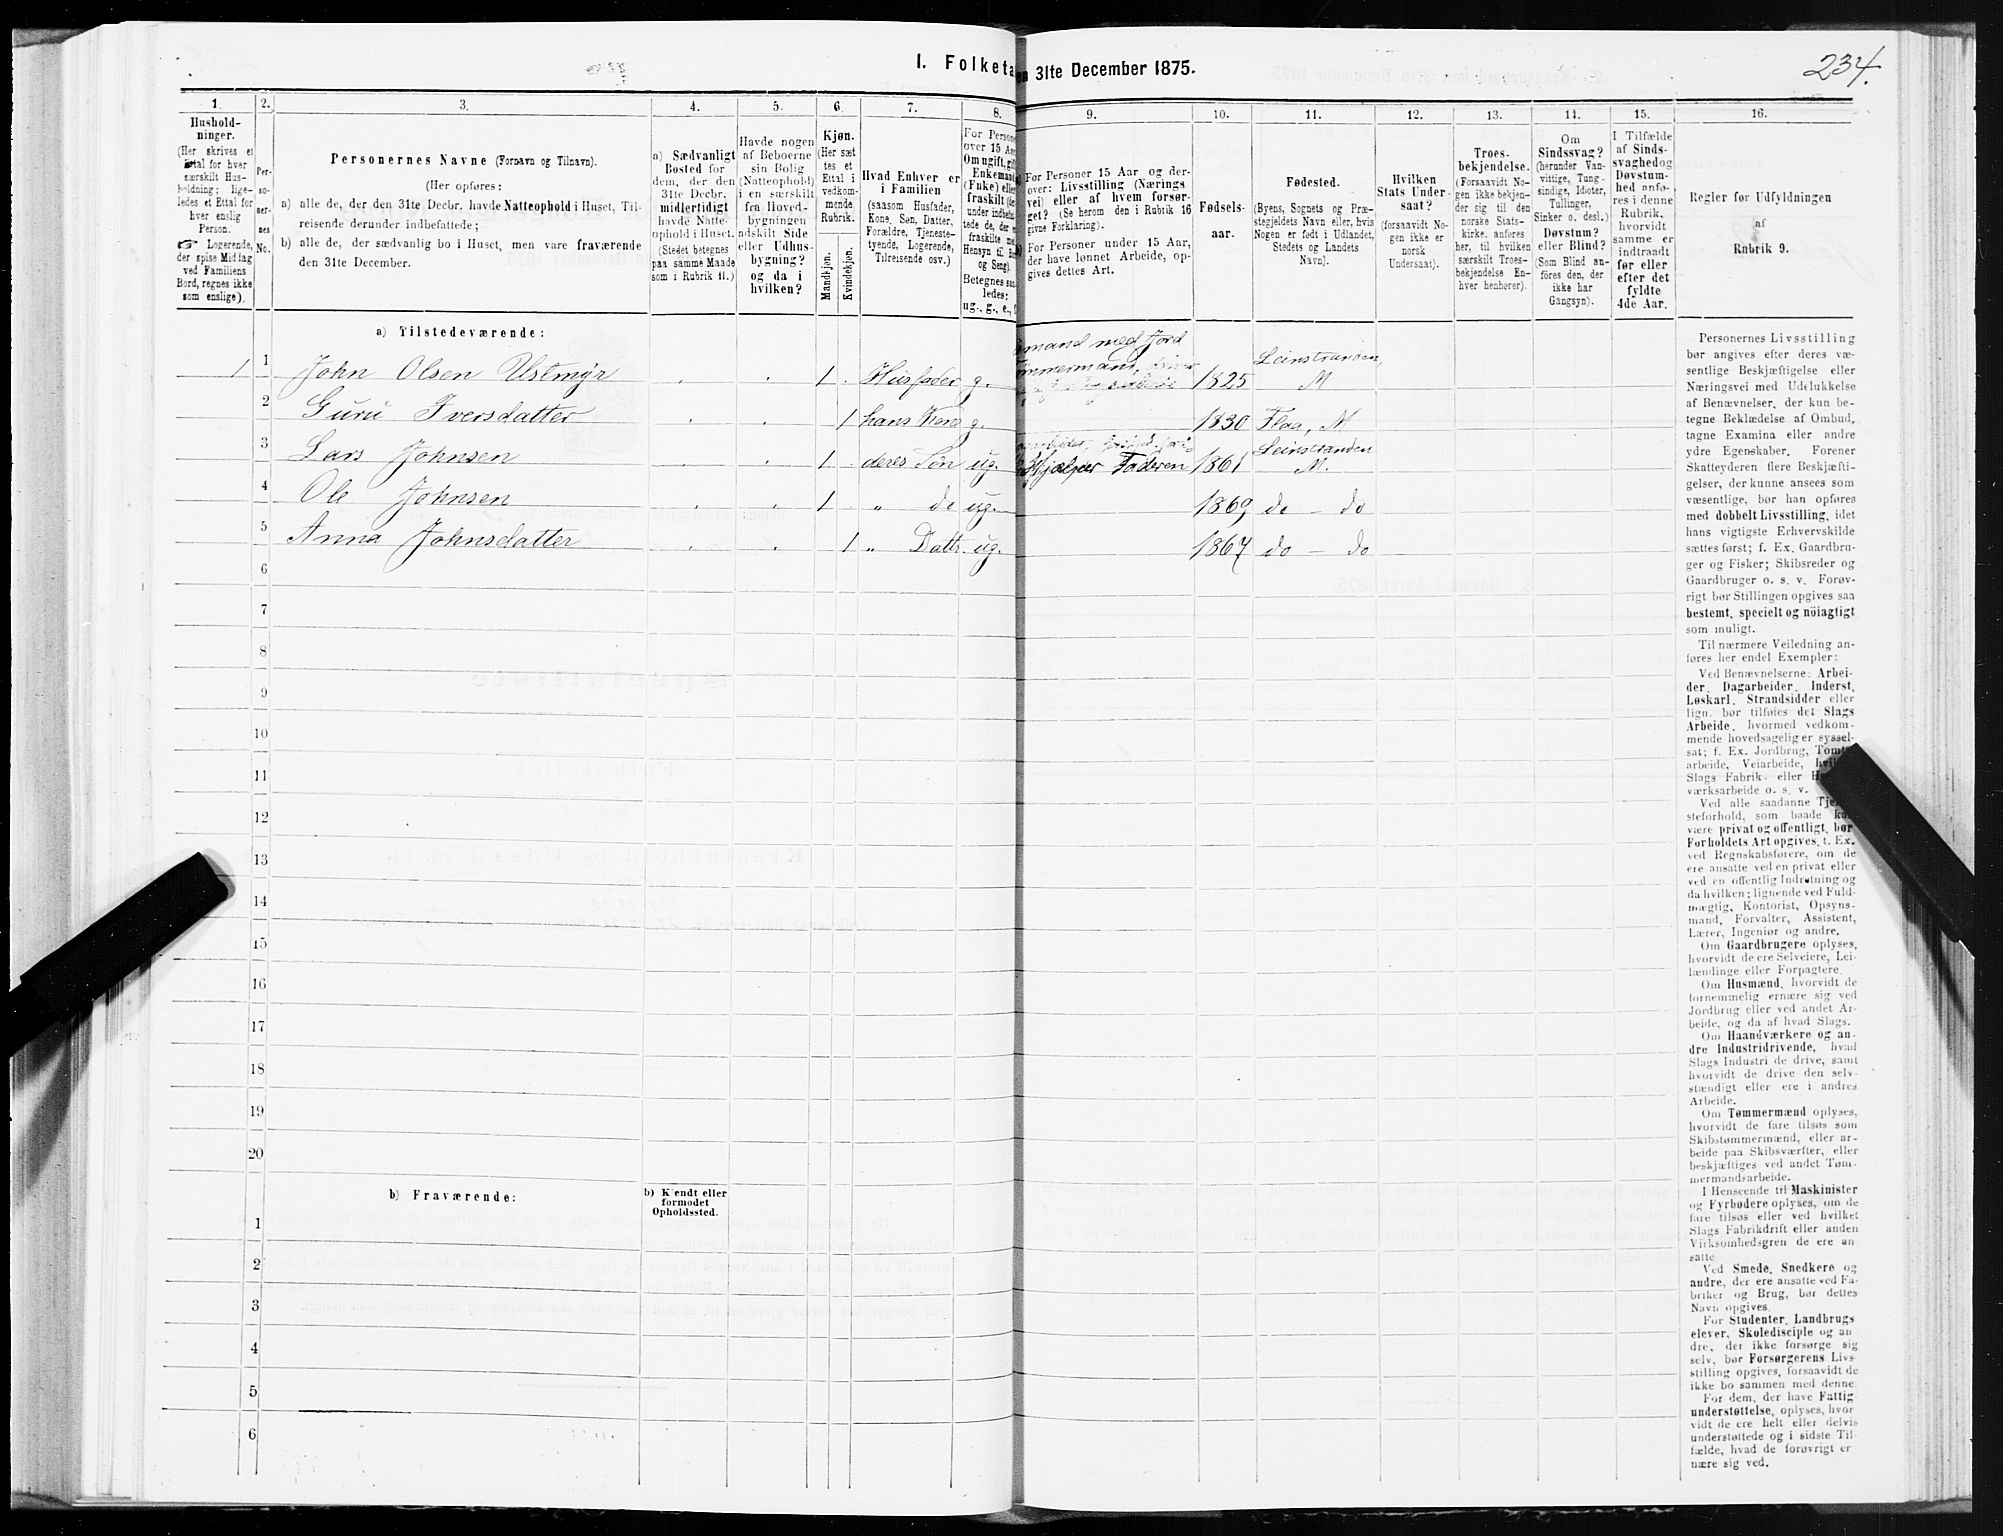 I. Folketa
en 31te December 1875.
234.
1.
2.
3.
4.
5.
6.
7.
8.
9.
10.
11.
12.
13.
14.
15.
16.
Hushold-
ninger.
(Her skrives et
Ettal for hver
særskilt Hus-
holdning; lige-
ledes et Ettal for
hver enslig
Person.
☞ Logerende,
der spise Middag
ved Familiens
Bord, regnes ikke
som enslige).
Per-
so-
ner-
nes
No.
Personernes Navne (Fornavn og Tilnavn).
(Her opføres:
a) alle de, der den 31te Decbr. havde Natteophold i Huset, Til-
reisende derunder indbefattede;
b) alle de, der sædvanlig bo i Huset, men vare fraværende
den 31te December.
a) Sædvanligt
Bosted for
dem, der den
31te Decbr.
midlertidigt
havde Natte-
ophold i Huset.
(Stedet betegnes
paa samme Maade
som i Rubrik 11.)
Havde nogen
af Beboerne
sin Bolig
(Natteophold)
i en særskilt
fra Hoved-
bygningen
adskilt Side
eller Udhus-
bygning?
og da i
hvilken?
Kjøn.
(Her sæt
tes et
Ettal i
vedkom-
mende
Rubrik.
Mandkjøn.
Kvindekjøn.
Hvad Enhver er
i Familien
(saasom Husfader,
Kone, Søn, Datter,
Forældre, Tjeneste-
tyende, Logerende,
Tilreisende osv.)
For Persone
over 15 Aa
Om ugift, gift
Enkemand
(Enke) elle
fraskilt (de
under indbefat
tede de, der e
fraskilte m
Hensyn til B
og Seng).
Betegnes saa
ledes:
ug., g., e., f
For Personer 15 Aar og der-
over: Livsstilling (Nærings
vei) eller af hvem forsør-
get? (Se herom den i Rubrik 16
givne Forklaring).
For Personer under 15 Aar,
der have lønnet Arbeide, op-
gives dettes Art.
Fødsels-
aar.
Fødested.
(Byens, Sognets og Præ-
stegjeldets Navn eller, hvis
Nogen er født i Udlandet,
Stedets og Landets
Navn).
Hvilken
Stats Under-
saat?
(forsaavidt No-
gen ikke er
norsk
Undersaat).
Troes-
bekjendelse.
(Forsaavidt No-
gen ikke bekjen-
der sig til den
norske Stats-
kirke, anføres
her, til hvilken
særskilt Troes-
bekjendelse En-
hver henhører).
Om
Sindssvag?
(herunder Van-
vittige, Tung-
sindige, Idioter,
Tullinger,
Sinker o. desl.)
Døvstum?
eller Blind?
(Som Blind an-
føres den, der
ikke har
Gangsyn).
I Tilfælde
af Sinds-
svaghed og
Døvstum-
hed anfø-
res i denne
Rubrik,
hvorvidt
samme er
indtraadt
før eller
efter det
fyldte
4de Aar.
Regler for Udfyldningen
af
Rubrik 9.
a) Tilstedeværende:
1 1 John Olsen Ustmyr 1 Husfader g. mand med Jord 1825 Leinstranden, M
2 Guru Iversdatter 1 hans Kone g. 1830 Flaa, M
3 Lars Johnsen 1 deres Søn ug. Hjælper Faderen 1861 Leinstranden M.
4 Ole Johnsen 1 " do ug. 1869 do – do
5 Anna Johnsdatter 1 " Dattr. ug. 1867 do – do
6
7
8
9
10
11
12
13
14
15
16
17
18
19
20
b) Fraværende:
b) Kjendt eller
formodet
Opholdssted.
1
2
3
4
5
6
Personernes Livsstilling
bør angives efter deres væ-
sentlige Beskjæftigelse eller
Næringsvei med Udelukkelse
af Benævnelser, der kun be-
tegne Beklædelse af Ombud,
tagne Examina eller andre
ydre Egenskaber. Forener
Skatteyderen flere Beskjæfti-
gelser, der kunne ansees som
væsentlige, bør han opføres
med dobbelt Livsstilling, idet
hans vigtigste Erhvervskilde
sættes først; f. Ex. Gaardbru-
ger og Fisker; Skibsreder og
Gaardbruger o. s. v. Forøv-
rigt bør Stillingen opgives saa
bestemt, specielt og nöiagtigt
som muligt.
Til nærmere Veiledning an-
føres her endel Exempler:
Ved Benævnelserne: Arbei-
der, Dagarbeider, Inderst,
Løskarl, Strandsidder eller
lign. bør tilføies det Slags
Arbeide, hvormed vedkom-
mende hovedsagelig er syssel-
sat; f. Ex. Jordbrug, Tomte-
arbeide, Veiarbeide, hvil
Slags Fabrik- eller H
værksarbeide o. s. v.
Ved alle saadanne Tje
steforhold, som baade k
være privat og offentligt, bør
Forholdets Art opgives, t. Ex.
ved Regnskabsførere, om de
ere ansatte ved en privat eller
ved en offentlig Indretning og
da hvilken; lignende ved Fuld-
mægtig, Kontorist, Opsyns-
mand, Forvalter, Assistent,
Lærer, Ingeniør og andre.
Om Gaardbrugere oplyses,
hvorvidt de ere Selveiere, Lei-
lændinge eller Forpagtere.
Om Husmænd, hvorvidt de
fornemmelig ernære sig ved
Jordbrug eller ved andet Ar-
beide, og da af hvad Slags.
Om Haandværkere og an-
dre Industridrivende, hvad
Slags Industri de drive, samt
hvorvidt de drive den selv-
stændigt eller ere i andres
Arbeide.
Om Tømmermænd oplyses,
hvorvidt de fare tilsøs som
Skibstømmermænd, eller ar-
beide paa Skibsværfter, eller
beskjæftiges ved andet Tøm-
mermandsarbeide.
I Henseende til Maskinister
og Fyrbødere oplyses, om de
fare tilsøs eller ved hvilket
Slags Fabrikdrift eller anden
Virksomhedsgren de ere an-
satte.
Ved Smede, Snedkere og
andre, der ere ansatte ved Fa-
briker og Brug, bør dettes
Navn opgives.
For Studenter, Landbrugs
elever, Skoledisciple og an-
dre, der ikke forsørge sig
selv, bør Forsørgerens Livs-
stilling opgives, forsaavidt de
ikke bo sammen med denne.
For dem, der have Fattig-
understøttelse, oplyses, hvor
vidt de ere helt eller delvis
understøttede og i sidste Til-
fælde, hvad de forøvrigt er
nære sig ved.